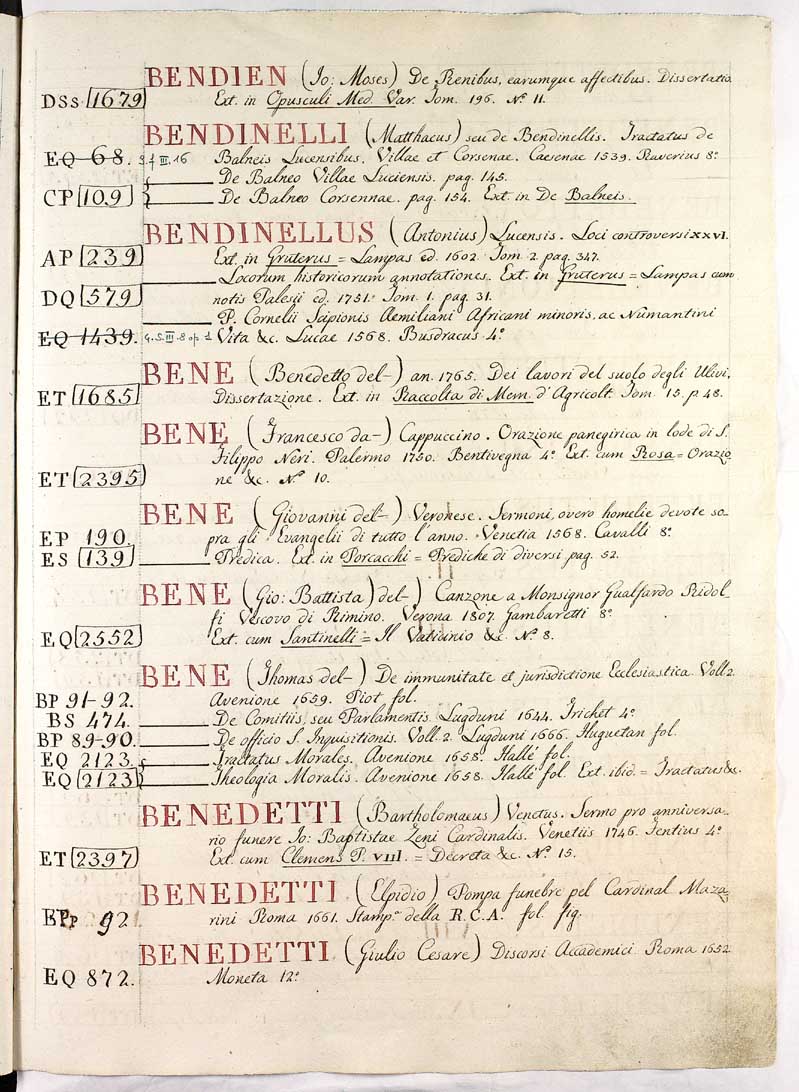 BENDIEN (Io: Moses) De Renibus, earumque affectibus. Dissertatio
DSS 1679 Ext. in Opusculi Med. Var. Tom. 196. N.º 11.
BENDINELLI (Matthaeus) seu de Bendinellis. Tractatus de
EQ 68. III. 16 Balneis Lucensibus, Villae et Corsenae. Caesenae 1539. Raverius 8º
De Balneo Villae Luciensis. pag. 145.
CP 109 De Balneo Corsennae. pag. 154. Ext. in De Balneis.
BENDINELLUS (Antonius) Lucensis. Loci controversi XXVI.
AP 239 Ext. in Gruterus = Lampas ed. 1602. Tom. 2. pag. 347.
Locorum historicorum annotationes. Ext. in Gruterus = Lampas cum
DQ 579 notis Palesii ed. 1751. Tom. 1. pag. 31.
P. Cornelii Scipionis Aemiliani Africani minoris, ac Numantini
EQ 1439. G.S.III.8 op. 1 Vita &c. Lucae 1568. Busdracus 4º
BENE (Benedetto del-) an. 1765. Dei lavori del suolo degli Ulivi,
ET 1685 Dissertazione. Ext. in Raccolta di Mem. d'Agricolt. Tom. 15. p. 48.
BENE (Francesco da-) Cappuccino. Orazione panegirica in lode di S.
Filippo Neri. Palermo 1750. Bentivegna 4º Ext. cum Rosa = Orazio
ET 2395 ne &c. Nº 10.
BENE (Giovanni del-) Veronese. Sermoni, overo homelie devote so-
EP 190. pra gli Evangelii di tutto l'anno. Venetia 1568. Cavalli 8º
ES 139 Predica. Ext. in Porcacchi = Prediche di diversi pag. 52.
BENE (Gio: Battista) del-) Canzone a Monsignor Gualfardo Ridol
fi Vescovo di Rimino. Verona 1807. Gambaretti 8º
EQ 2552 Ext. cum Santinelli = Il Vaticinio &c. Nº 8.
BENE (Thomas del-) De immunitate et jurisdictione Ecclesiastica. Voll. 2.
BP 91-92. Avenione 1659. Piot fol.
BS 474. De Comitiis, seu Parlamentis. Lugduni 1644. Trichet 4º
BP 89-90. De officio S. Inquisitionis. Voll. 2. Lugduni 1666. Huguetan fol.
EQ 2123. Tractatus Morales. Avenione 1658. Hallé fol.
EQ 2123 Theologia Moralis. Avenione 1658. Hallé fol. Ext. ibid. = Tractatus &c.
BENEDETTI (Bartholomaeus) Venetus. Sermo pro anniversa-
rio funere Io: Baptistae Zeni Cardinalis. Venetiis 1746. Tentius 4º
ET 2397 Ext. cum Clemens P. VIII. = Decreta &c. Nº 15.
BENEDETTI (Elpidio) Pompa funebre pel Cardinal Maza
92. rini Roma 1661. Stamp.ª della R.C.A. fol. fig.
BENEDETTI (Giulio Cesare) Discorsi Accademici. Roma 1652.
EQ 872. Moneta 12º